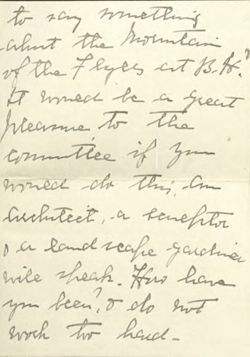 to say something
about the Mountain
of the 7 Lakes at B. H."
It would be a great
pleasure to the
committee if you
would do this, an
architect, a sculptor
& a landscape gardener
will speak. How have
you been? & do not
work too hard -